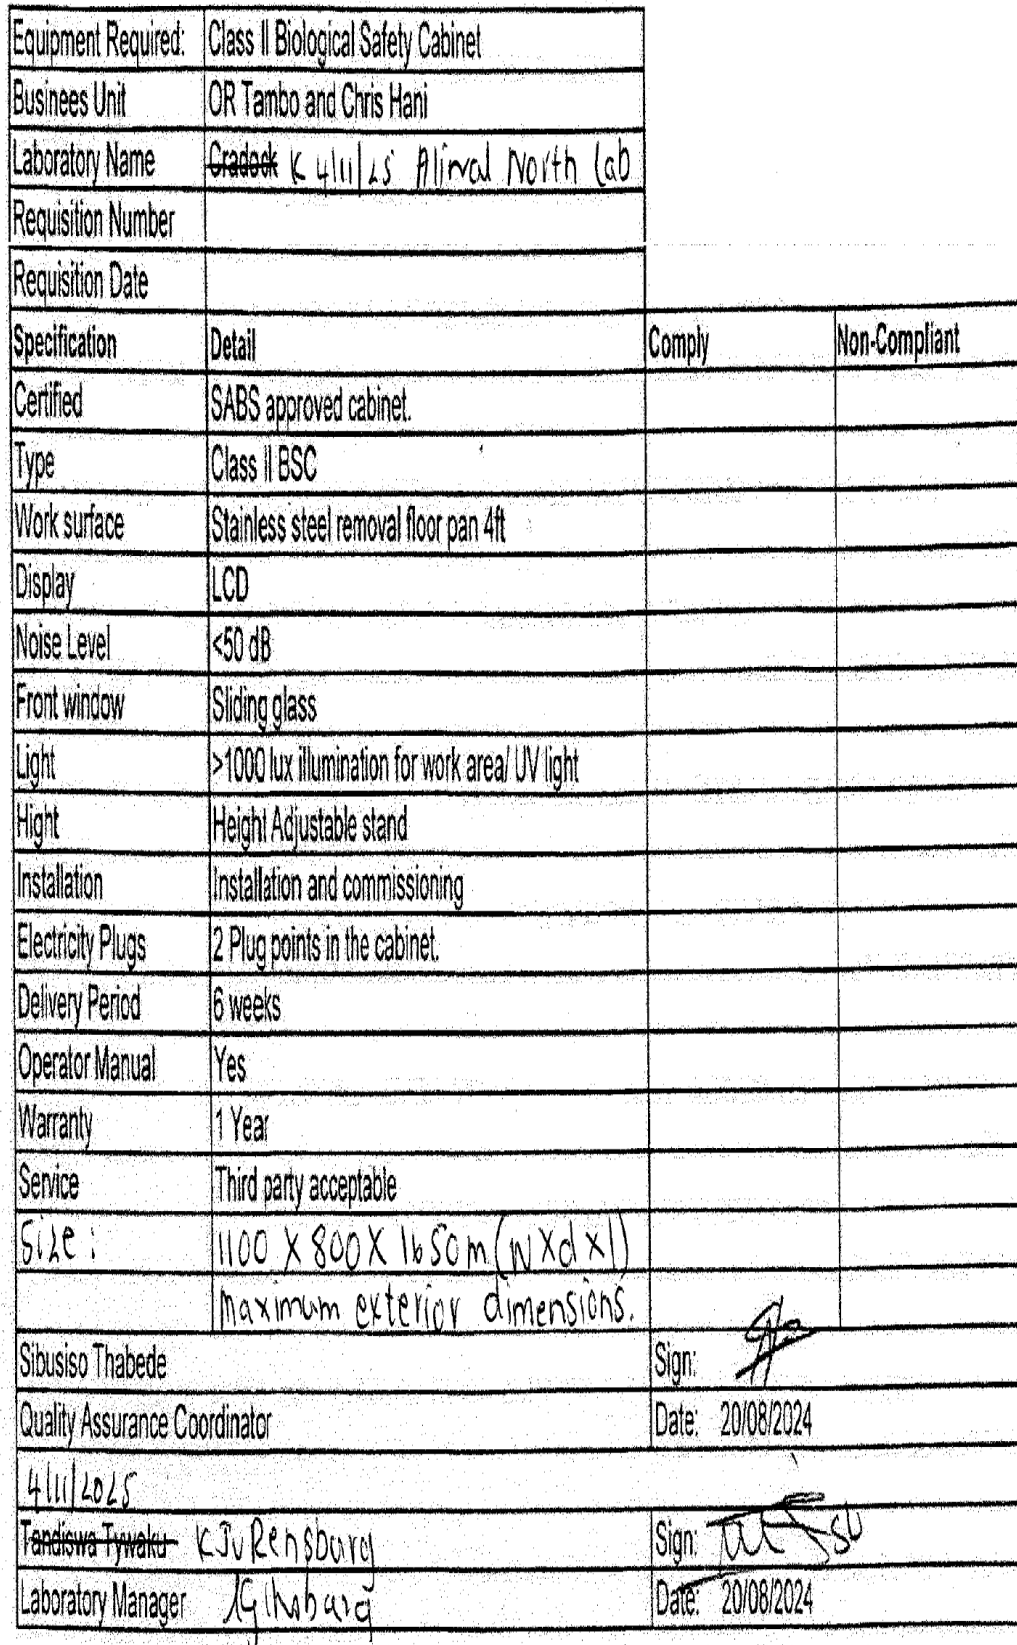 Equipment Required: Class II Biological Safety Cabinet
Businees Unit OR Tambo and Chris Hani
Laboratory Name Cradock K 4/11/25 Aliwal North Lab
Requisition Number
Requisition Date
Specification Detail Comply Non-Compliant
Certified SABS approved cabinet.
Type Class II BSC
Work surface Stainless steel removal floor pan 4ft
Display LCD
Noise Level <50 dB
Front window Sliding glass
Light >1000 lux illumination for work area/ UV light
Hight Height Adjustable stand
Installation Installation and commissioning
Electricity Plugs 2 Plug points in the cabinet.
Delivery Period 6 weeks
Operator Manual Yes
Warranty 1 Year
Service Third party acceptable
Size: 1100 X 800 X 1650m (WXdXl)
maximum exterior dimensions.
Sibusiso Thabede Sign:
Quality Assurance Coordinator Date: 20/08/2024
4/11/2025
Tandiswa Tywaku KJvRensburg Sign:
Laboratory Manager Date: 20/08/2024